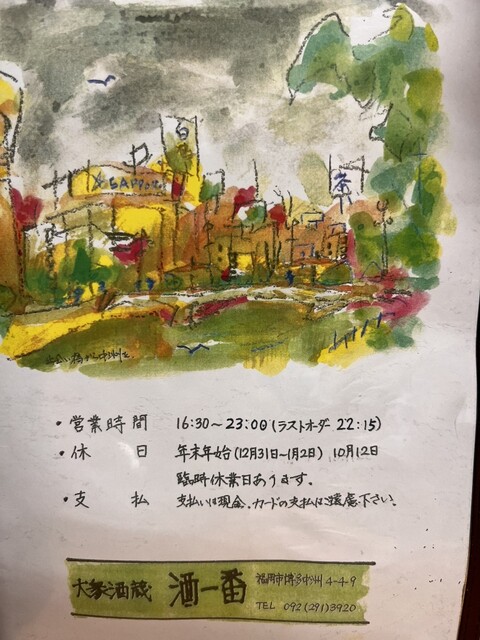 SAPPORO
・営業時間 16:30～23:00(ラストオーダー 22:15)
・休日 年末年始(12月31日～1月2日) 10月12日
臨時休業日あります。
・支払 支払いは現金、カードの支払はご遠慮下さい。
大衆酒蔵 酒一番 福岡市博多中洲4-4-9
TEL 092(291)3920